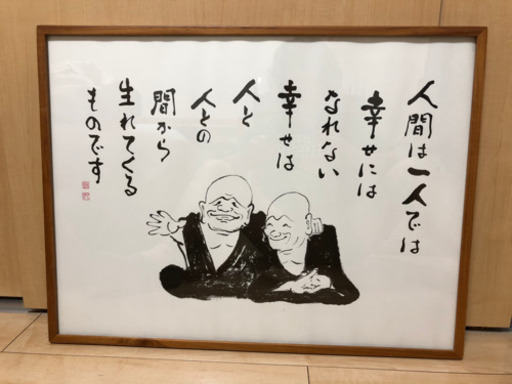 人間は一人では
幸せには
なれない
幸せは
人と
人との
間から
生れてくる
ものです